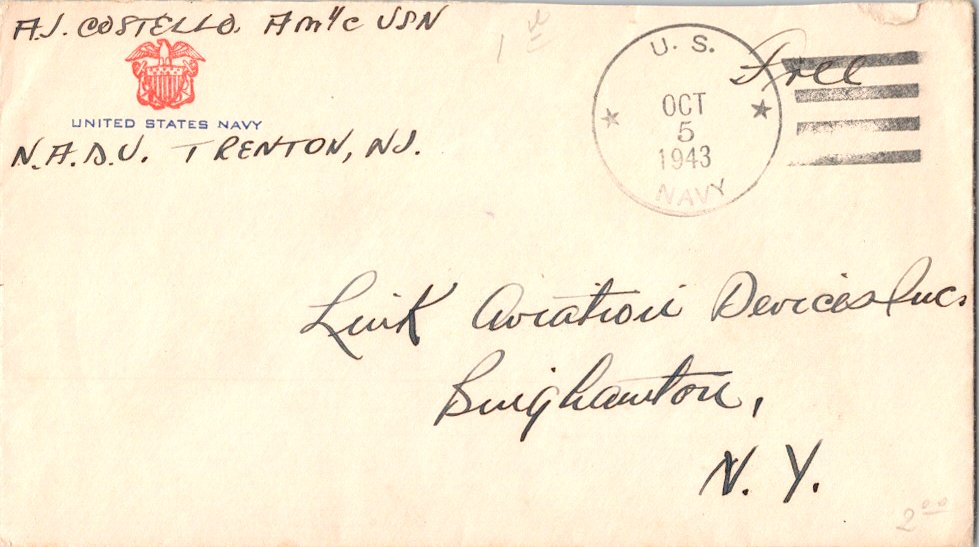 A.J. COSTELLO. AM"c USN
UNITED STATES NAVY
N.A.D.U. TRENTON, NJ.
U. S.
OCT
5
1943
NAVY
Free
Link Aviation Devices Inc.
Binghamton,
N. Y.
2.00